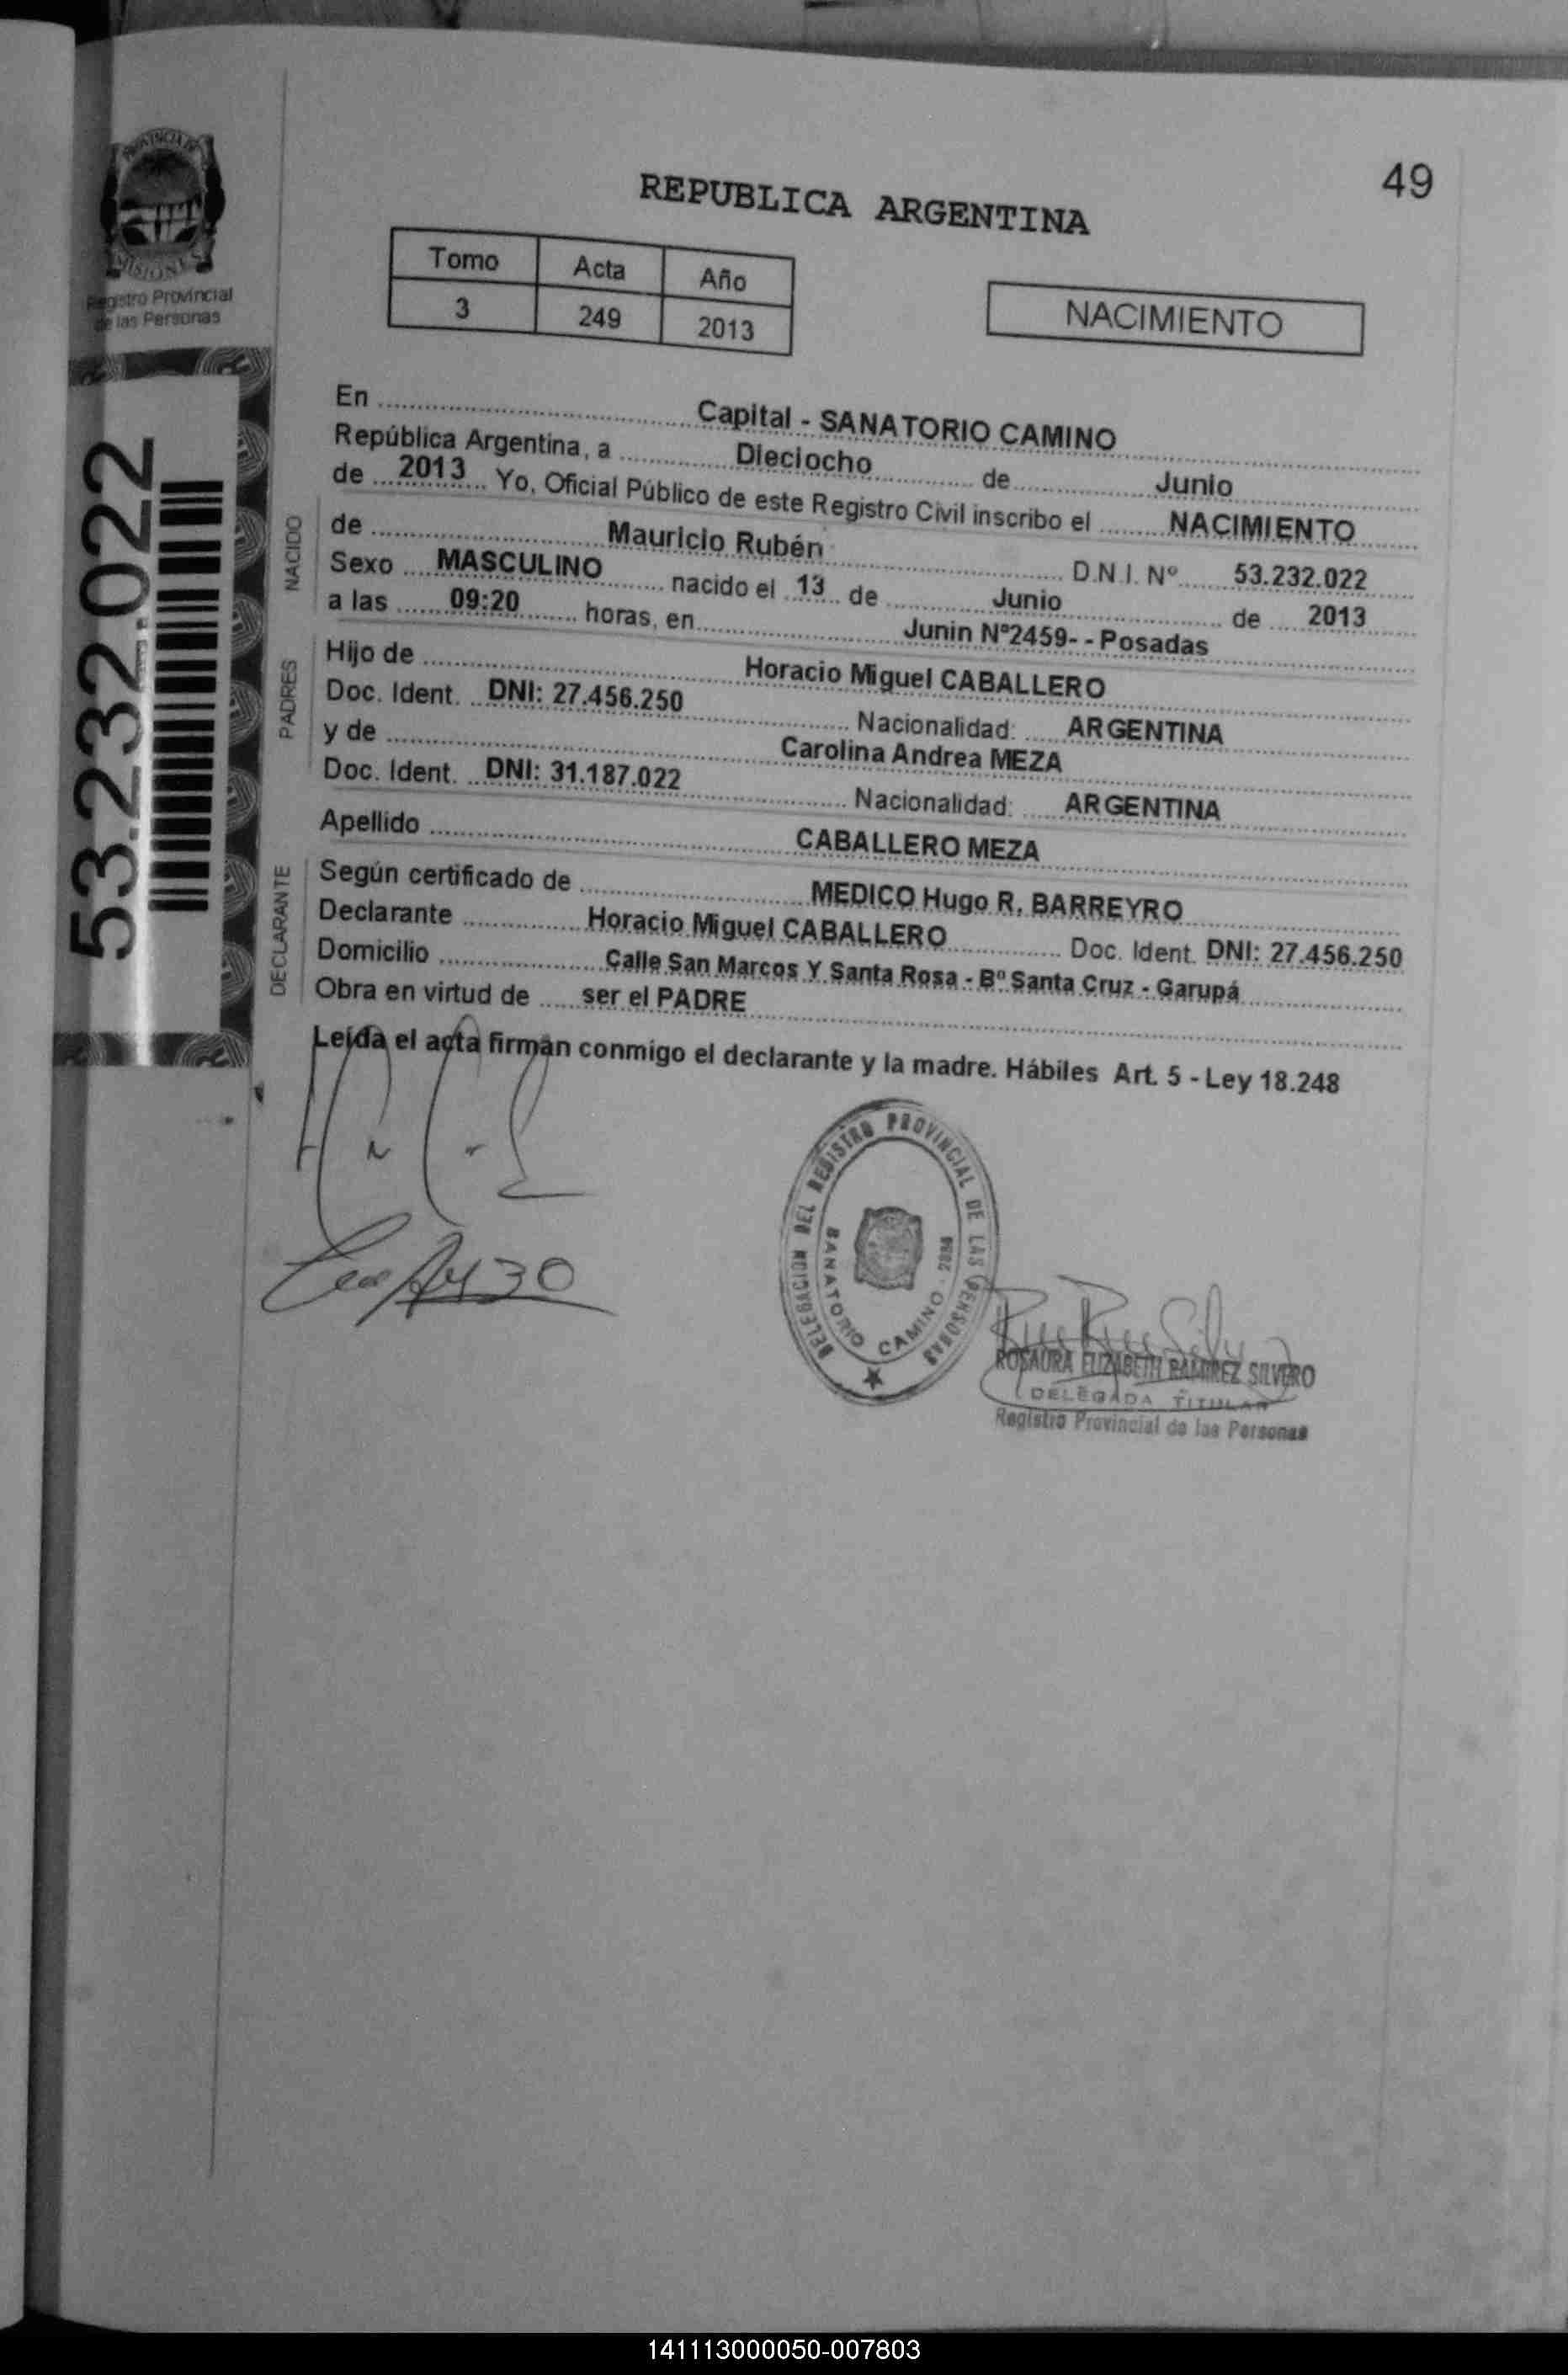 49
PROVINCIA DE
MISIONES
Registro Provincial
de las Personas
REPUBLICA ARGENTINA
Tomo Acta Año
3 249 2013
NACIMIENTO
53.232.022
En Capital - SANATORIO CAMINO
República Argentina, a Dieciocho de Junio
de 2013 Yo, Oficial Público de este Registro Civil inscribo el NACIMIENTO
NACIDO
de Mauricio Rubén D.N.I. Nº 53.232.022
Sexo MASCULINO nacido el 13 de Junio de 2013
a las 09:20 horas, en Junin Nº2459- - Posadas
PADRES
Hijo de Horacio Miguel CABALLERO
Doc. Ident. DNI: 27.456.250 Nacionalidad: ARGENTINA
y de Carolina Andrea MEZA
Doc. Ident. DNI: 31.187.022 Nacionalidad: ARGENTINA
Apellido CABALLERO MEZA
DECLARANTE
Según certificado de MEDICO Hugo R. BARREYRO
Declarante Horacio Miguel CABALLERO Doc. Ident. DNI: 27.456.250
Domicilio Calle San Marcos Y Santa Rosa - Bº Santa Cruz - Garupá
Obra en virtud de ser el PADRE
Leída el acta firman conmigo el declarante y la madre. Hábiles Art. 5 - Ley 18.248
DELEGACION DEL REGISTRO PROVINCIAL DE LAS PERSONAS
SANATORIO CAMINO
ROSAURA ELIZABETH RAMIREZ SILVERO
DELEGADA TITULAR
Registro Provincial de las Personas
141113000050-007803